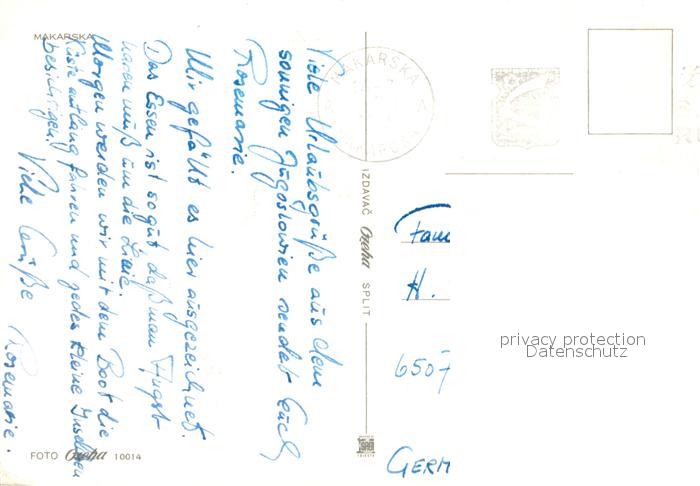 MAKARSKA
Viele Urlaubsgrüße aus dem
sonnigen Jugoslawien sendet Euch
Rosemarie.
Mir gefällt es hier ausgezeichnet.
Das Essen ist so gut, daß man Angst
haben muß um die Linie.
Morgen werden wir mit dem Boot die
Küste entlang fahren und jedes kleine Inselchen
besichtigen.
Viele Grüße
Rosemarie.
FOTO Ozeha 10014
IZDAVAČ Ozeha SPLIT
MAKARSKA
Fam
H.
6507
GERM
privacy protection
Datenschutz